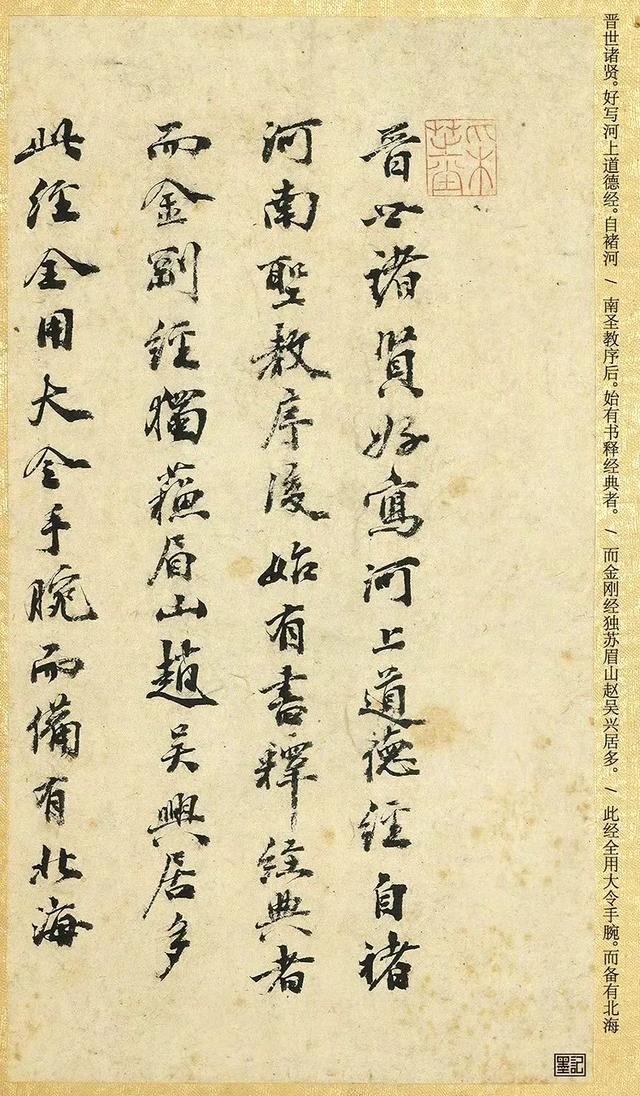 晋世诸贤。好写河上道德经。自褚河 / 南圣教序后。始有书释经典者。 / 而金刚经独苏眉山赵吴兴居多。 / 此经全用大令手腕。而备有北海
晉世諸賢好寫河上道德經自褚
河南聖教序後始有書釋經典者
而金剛經獨蘇眉山趙吳興居多
此經全用大令手腕而備有北海
墨記